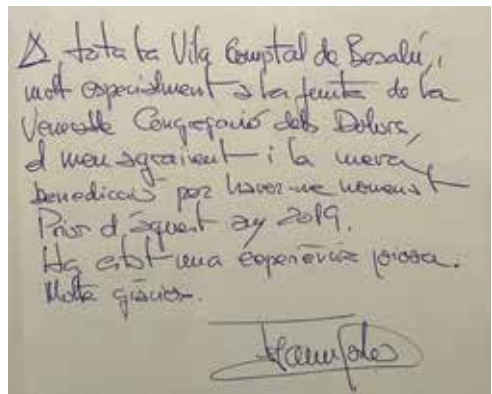 A tota la Vila Comptal de Besalú, i
molt especialment a la junta de la
Venerable Congregació dels Dolors,
el meu agraïment i la meva
benedicció per haver-me nomenat
Prior d'aquest any 2019.
Ha estat una experiència joiosa.
Moltes gràcies.